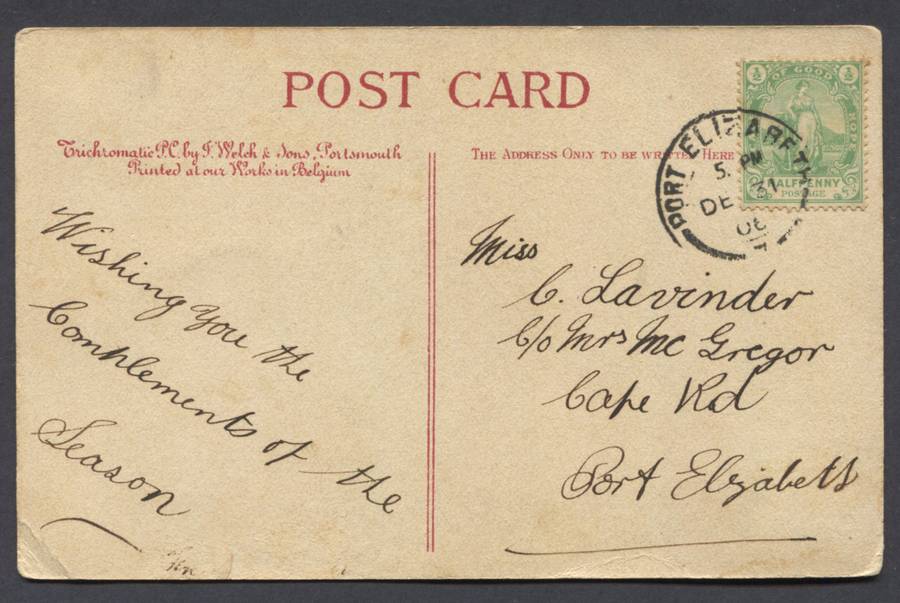 POST CARD
Trichromatic P.C. by J. Welch & Sons, Portsmouth
Printed at our Works in Belgium
THE ADDRESS ONLY TO BE WRITTEN HERE
½ OF GOOD ½
HOPE
HALFPENNY
POSTAGE
PORT ELIZABETH
5. PM
DE 31
06
Wishing you the
Complements of the
Season
Miss
C. Lavinder
C/o Mrs Mc Gregor
Cape Rd
Port Elizabeth